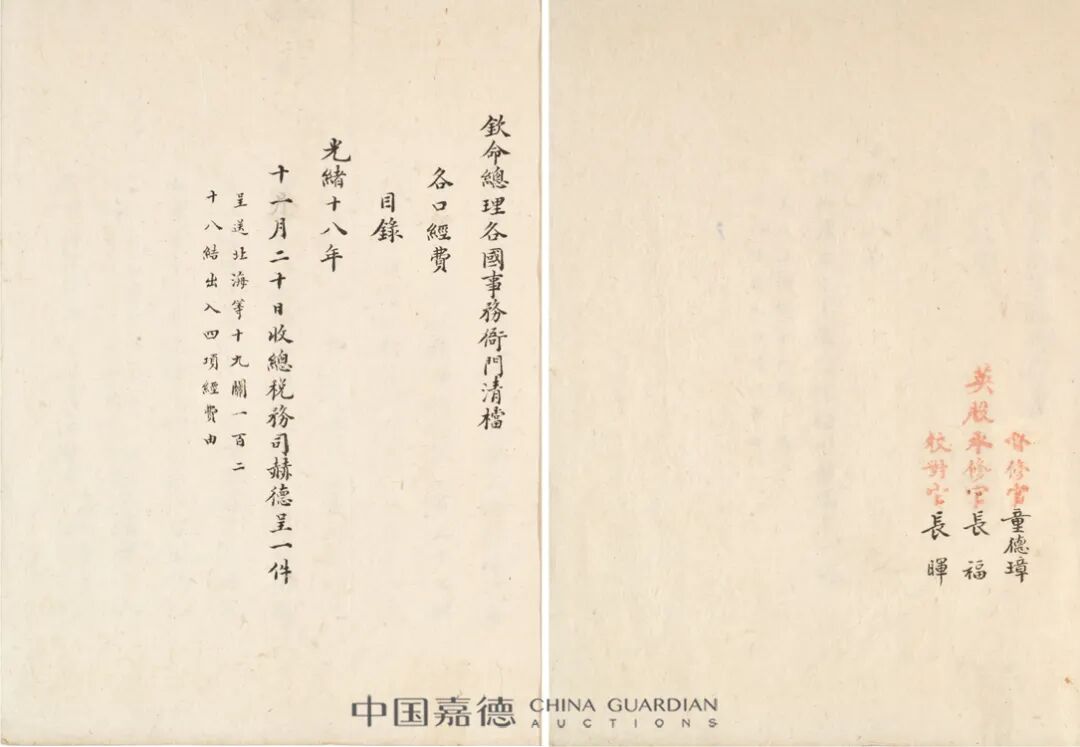 督修官童德璋
英股承修官長福
校對官長暉
欽命總理各國事務衙門清檔
各口經費
目錄
光緒十八年
十一月二十日收總稅務司赫德呈一件
呈送北海等十九關一百二
十八結出入四項經費由
中国嘉德 CHINA GUARDIAN
AUCTIONS